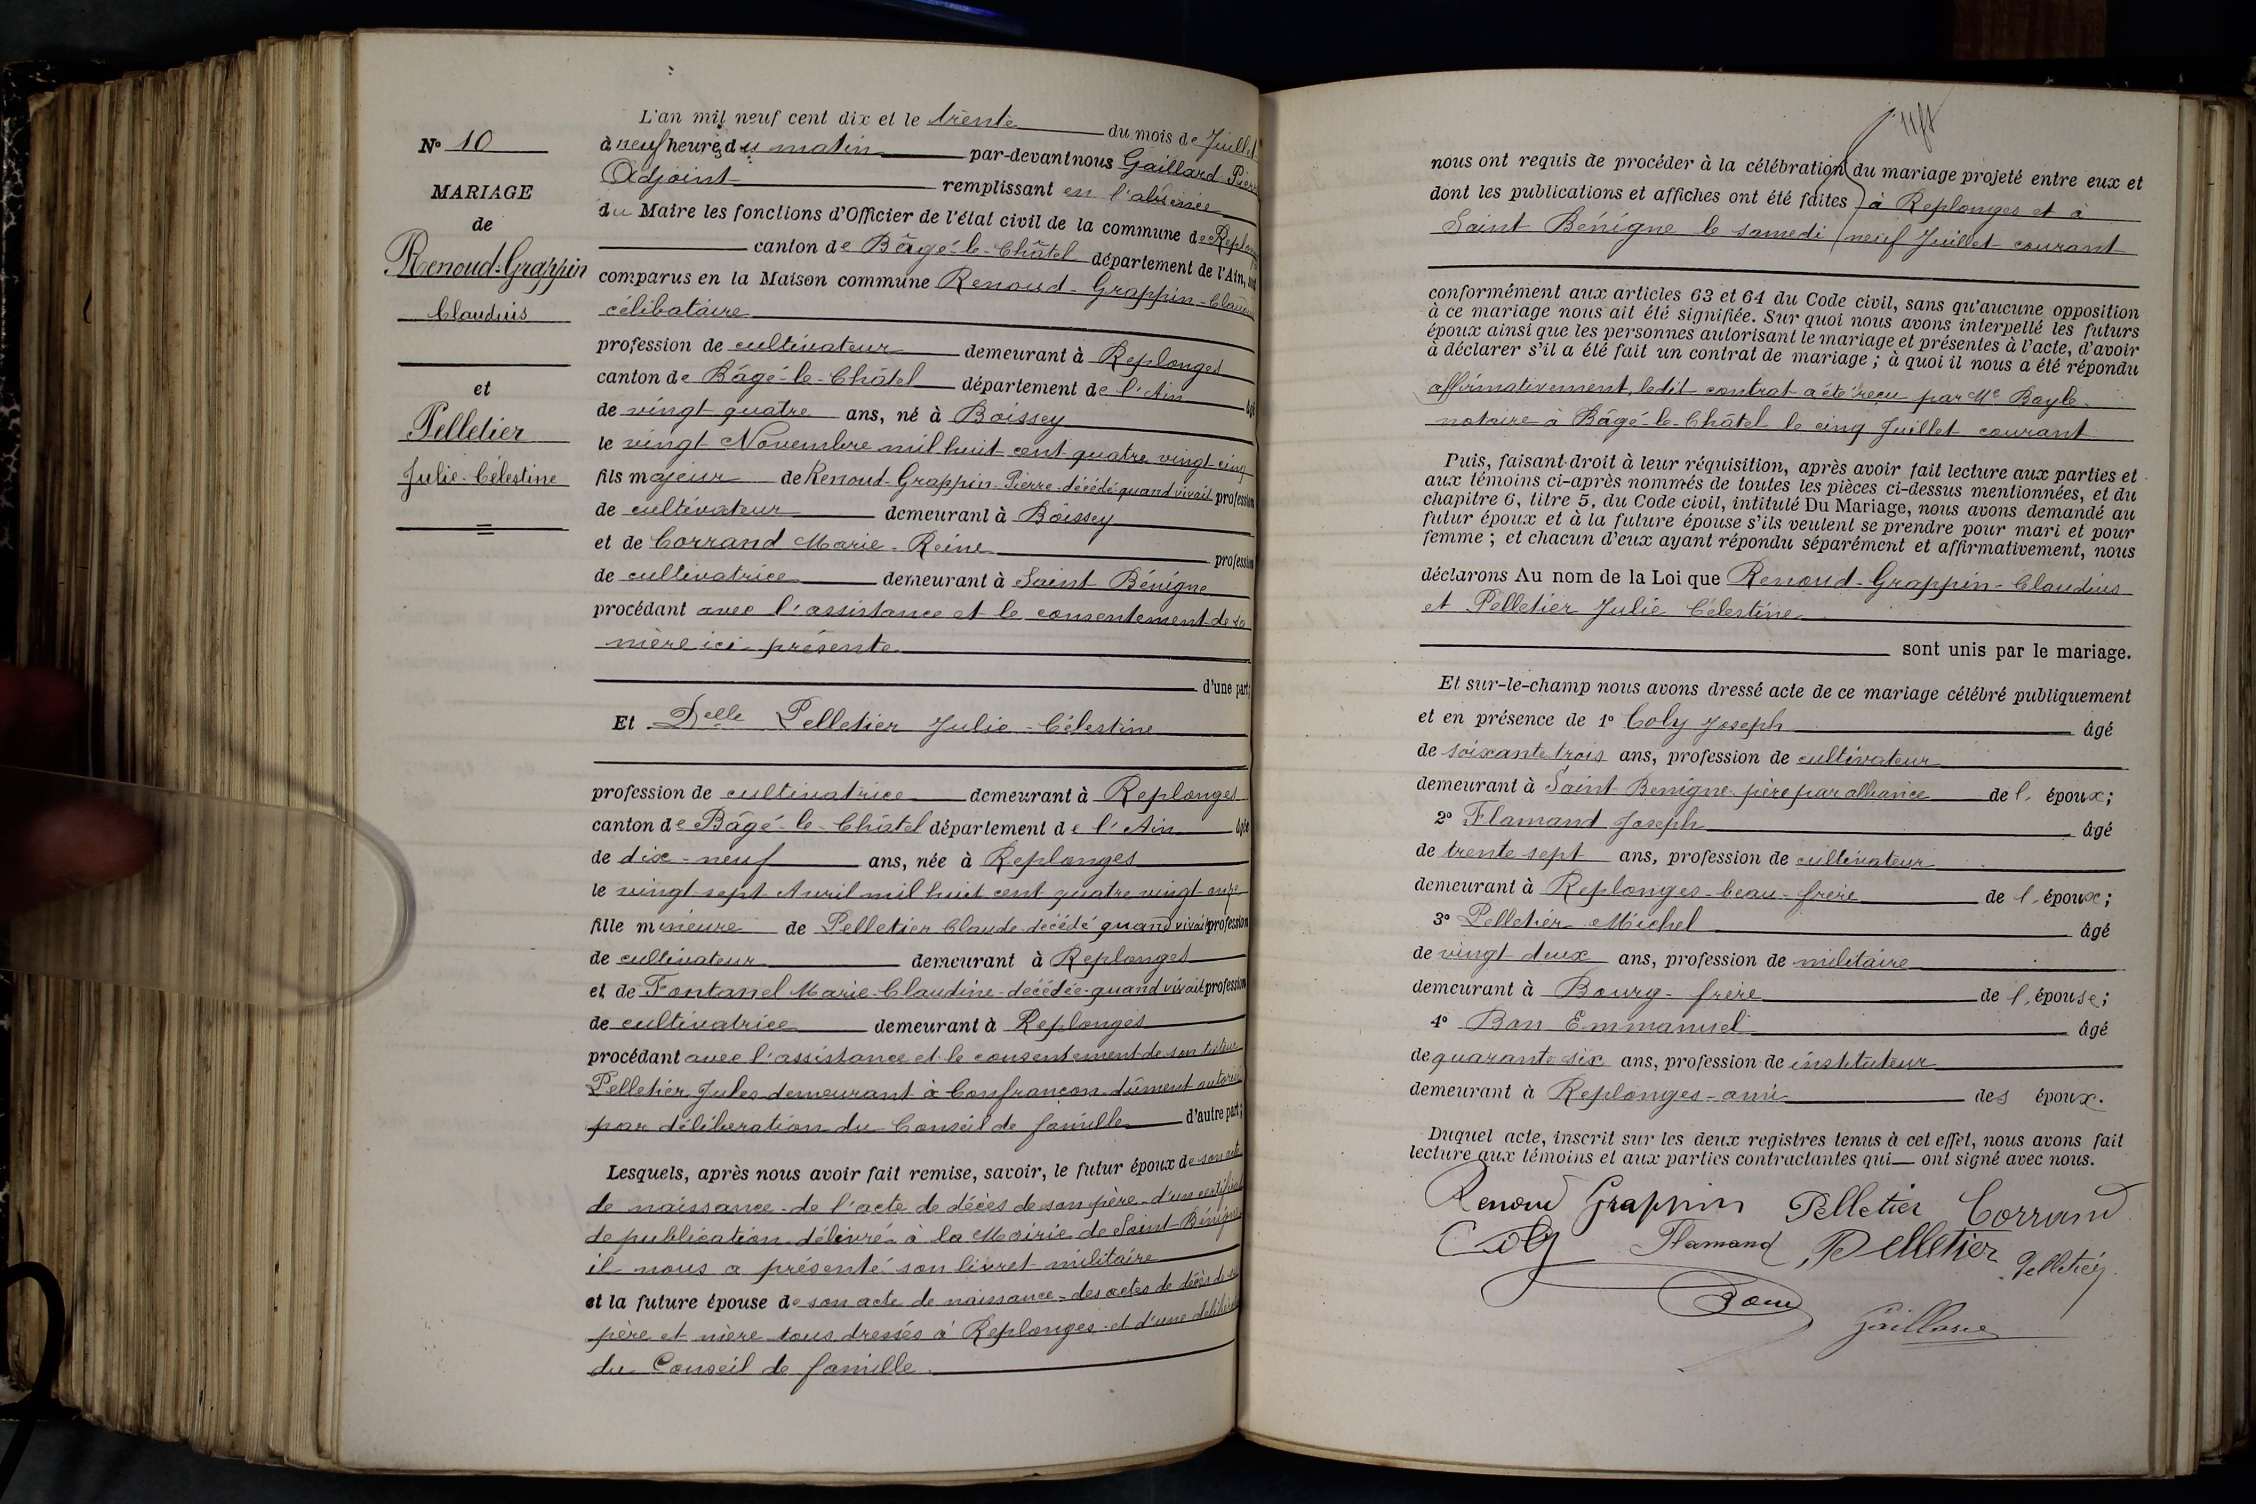 N° 10
MARIAGE
de
Renoud-Grappin
Claudius
et
Pelletier
Julie-Célestine
L'an mil neuf cent dix et le trente du mois de Juillet
à neuf heures du matin par-devant nous Gaillard Pierre
Adjoint remplissant en l'absence
du Maire les fonctions d'Officier de l'état civil de la commune de Replonges
canton de Bâgé-le-Châtel département de l'Ain, sont
comparus en la Maison commune Renoud-Grappin-Claudius
célibataire
profession de cultivateur demeurant à Replonges
canton de Bâgé-le-Châtel département de l'Ain âgé
de vingt quatre ans, né à Boissey
le vingt Novembre mil huit cent quatre vingt cinq
fils majeur de Renoud-Grappin-Pierre décédé quand vivait profession
de cultivateur demeurant à Boissey
et de Corrand Marie-Reine profession
de cultivatrice demeurant à Saint Bénigne
procédant avec l'assistance et le consentement de sa
mère ici présente
d'une part;
Et Delle Pelletier Julie-Célestine
profession de cultivatrice demeurant à Replonges
canton de Bâgé-le-Châtel département de l'Ain âgée
de dix-neuf ans, née à Replonges
le vingt sept Avril mil huit cent quatre vingt onze
fille mineure de Pelletier Claude décédé quand vivait profession
de cultivateur demeurant à Replonges
et de Fontanel Marie-Claudine-décédée-quand vivait profession
de cultivatrice demeurant à Replonges
procédant avec l'assistance et le consentement de son tuteur
Pelletier Jules demeurant à Confrançon dûment autorisé
par délibération du Conseil de famille d'autre part;
Lesquels, après nous avoir fait remise, savoir, le futur époux de son acte
de naissance-de l'acte de décès de son père-d'un certificat
de publication délivré à la Mairie de Saint-Bénigne
il nous a présenté son livret militaire
et la future épouse de son acte de naissance-des actes de décès de ses
père et mère tous dressés à Replonges et d'une délibération
du Conseil de famille.
nous ont requis de procéder à la célébration du mariage projeté entre eux et
dont les publications et affiches ont été faites à Replonges et à
Saint Bénigne le samedi neuf Juillet courant
conformément aux articles 63 et 64 du Code civil, sans qu'aucune opposition
à ce mariage nous ait été signifiée. Sur quoi nous avons interpellé les futurs
époux ainsi que les personnes autorisant le mariage et présentes à l'acte, d'avoir
à déclarer s'il a été fait un contrat de mariage; à quoi il nous a été répondu
affirmativement, ledit contrat a été reçu par Me Bayle
notaire à Bâgé-le-Châtel le cinq Juillet courant
Puis, faisant droit à leur réquisition, après avoir fait lecture aux parties et
aux témoins ci-après nommés de toutes les pièces ci-dessus mentionnées, et du
chapitre 6, titre 5, du Code civil, intitulé Du Mariage, nous avons demandé au
futur époux et à la future épouse s'ils veulent se prendre pour mari et pour
femme; et chacun d'eux ayant répondu séparément et affirmativement, nous
déclarons Au nom de la Loi que Renoud-Grappin-Claudius
et Pelletier Julie Célestine
sont unis par le mariage.
Et sur-le-champ nous avons dressé acte de ce mariage célébré publiquement
et en présence de 1° Coly Joseph âgé
de soixante trois ans, profession de cultivateur
demeurant à Saint Benigne père par alliance de l. époux;
2° Flamand Joseph âgé
de trente sept ans, profession de cultivateur
demeurant à Replonges-beau-frère de l. époux;
3° Pelletier Michel âgé
de vingt deux ans, profession de militaire
demeurant à Bourg-frère de l. épouse;
4° Bon Emmanuel âgé
de quarante six ans, profession de instituteur
demeurant à Replonges-ami des époux.
Duquel acte, inscrit sur les deux registres tenus à cet effet, nous avons fait
lecture aux témoins et aux parties contractantes qui ont signé avec nous.
Renoud Grappin Pelletier Corrand
Coly Flamand Pelletier Pelletier
Bon Gaillard